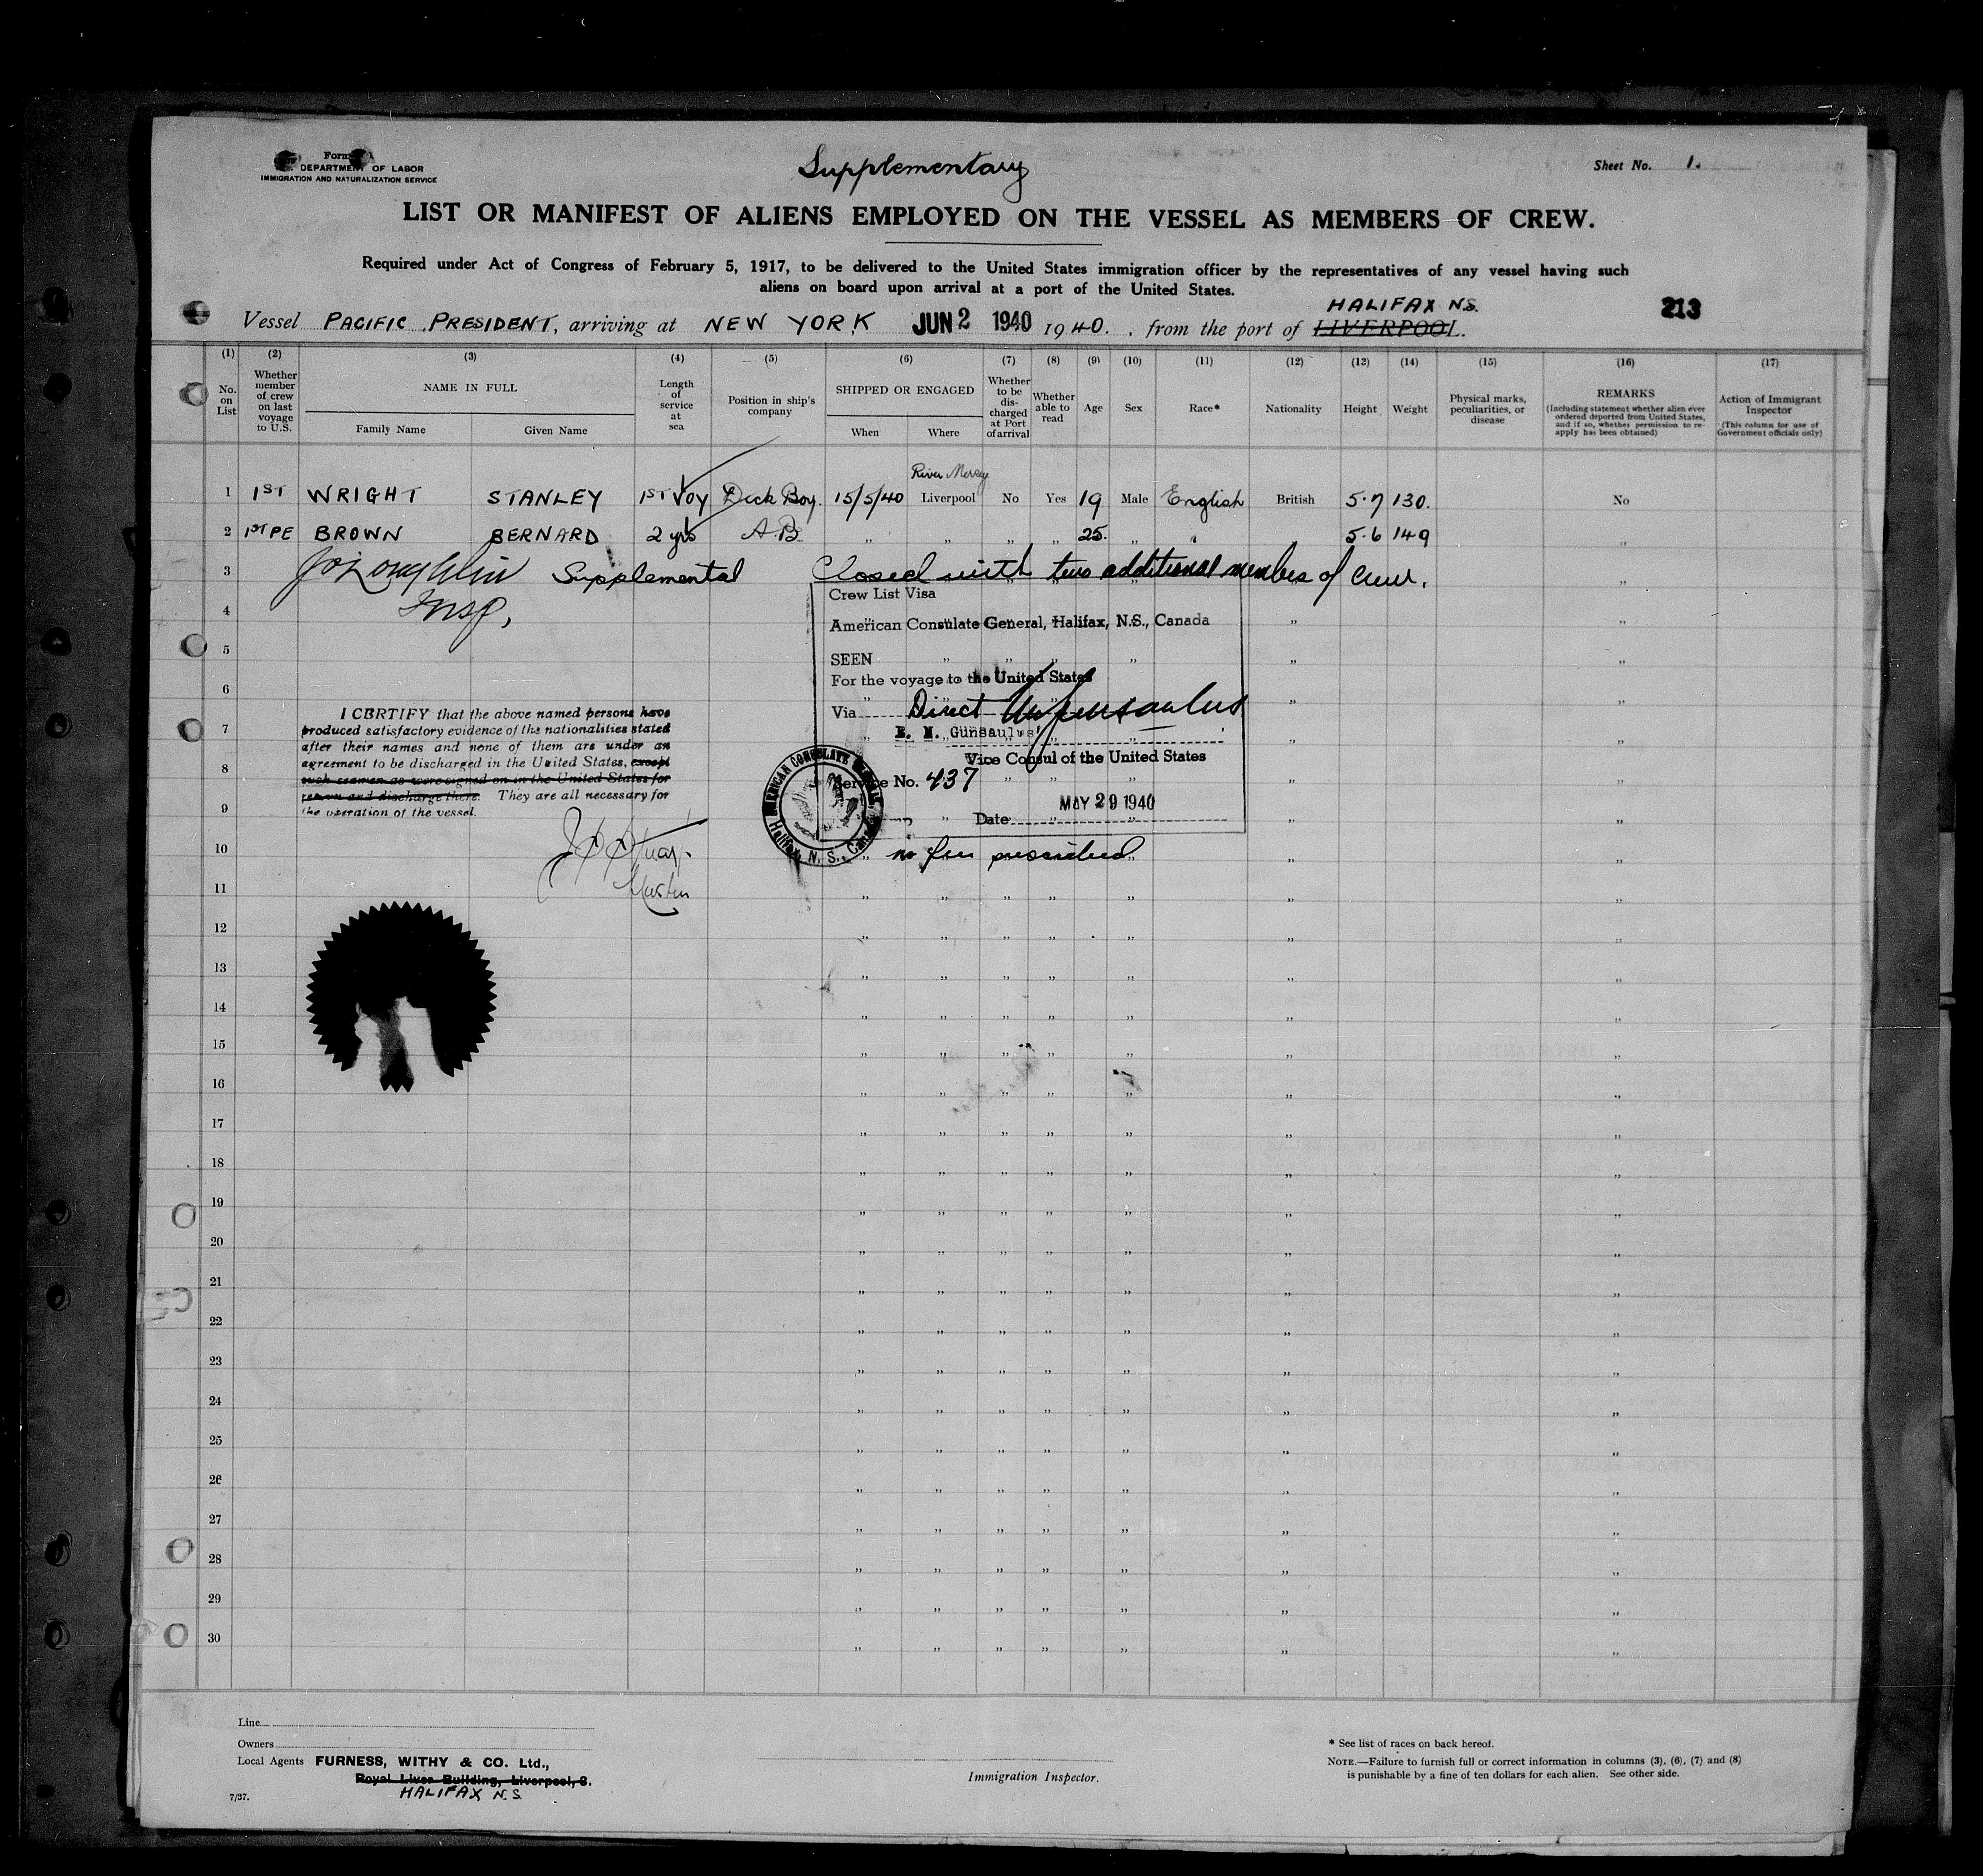 Form
DEPARTMENT OF LABOR
IMMIGRATION AND NATURALIZATION SERVICE
Supplementary
Sheet No. 1.
LIST OR MANIFEST OF ALIENS EMPLOYED ON THE VESSEL AS MEMBERS OF CREW.
Required under Act of Congress of February 5, 1917, to be delivered to the United States immigration officer by the representatives of any vessel having such
aliens on board upon arrival at a port of the United States.
HALIFAX N.S.
213
Vessel PACIFIC PRESIDENT, arriving at NEW YORK JUN 2 1940 1940., from the port of LIVERPOOL.
(1) (2) (3) (4) (5) (6) (7) (8) (9) (10) (11) (12) (13) (14) (15) (16) (17)
No. on List
Whether member of crew on last voyage to U.S.
NAME IN FULL
Family Name Given Name
Length of service at sea
Position in ship's company
SHIPPED OR ENGAGED
When Where
Whether to be discharged at Port of arrival
Whether able to read
Age
Sex
Race*
Nationality
Height
Weight
Physical marks, peculiarities, or disease
REMARKS
(Including statement whether alien ever ordered deported from United States, and if so, whether permission to re-apply has been obtained)
Action of Immigrant Inspector
(This column for use of Government officials only)
River Mersey
1 1ST WRIGHT STANLEY 1ST VOY Deck Boy. 15/5/40 Liverpool No Yes 19 Male English British 5·7 130. No
2 1ST PE BROWN BERNARD 2 yrs A.B. " " " " 25. " " 5·6 149 "
3 Jo'Loughlin Supplemental Closed with two additional members of crew. "
4 Insp.
Crew List Visa
American Consulate General, Halifax, N.S., Canada " "
5 SEEN " " " " "
6 For the voyage to the United States
Via Direct
E. M. Gunsaulus
Vice Consul of the United States
Service No. 437
MAY 29 1940
Date
AMERICAN CONSULATE GENERAL
Halifax, N. S., Canada
no fee prescribed
I CERTIFY that the above named persons have
produced satisfactory evidence of the nationalities stated
after their names and none of them are under an
agreement to be discharged in the United States, except
such seamen as were signed on in the United States for
return and discharge there. They are all necessary for
the operation of the vessel.
Master
7
8
9
10
11 " " " " " " "
12 " " " " " " "
13 " " " " " " "
14 " " " " " " "
15 " " " " " " "
16 " " " " " " "
17 " " " " " " "
18 " " " " " " "
19 " " " " " " "
20 " " " " " " "
21 " " " " " " "
22 " " " " " " "
23 " " " " " " "
24 " " " " " " "
25 " " " " " " "
26 " " " " " " "
27 " " " " " " "
28 " " " " " " "
29 " " " " " " "
30 " " " " " " "
Line
Owners
Local Agents FURNESS, WITHY & CO. Ltd.,
Royal Liver Building, Liverpool, 3.
HALIFAX N.S.
7/37.
Immigration Inspector.
* See list of races on back hereof.
NOTE.—Failure to furnish full or correct information in columns (3), (6), (7) and (8)
is punishable by a fine of ten dollars for each alien. See other side.